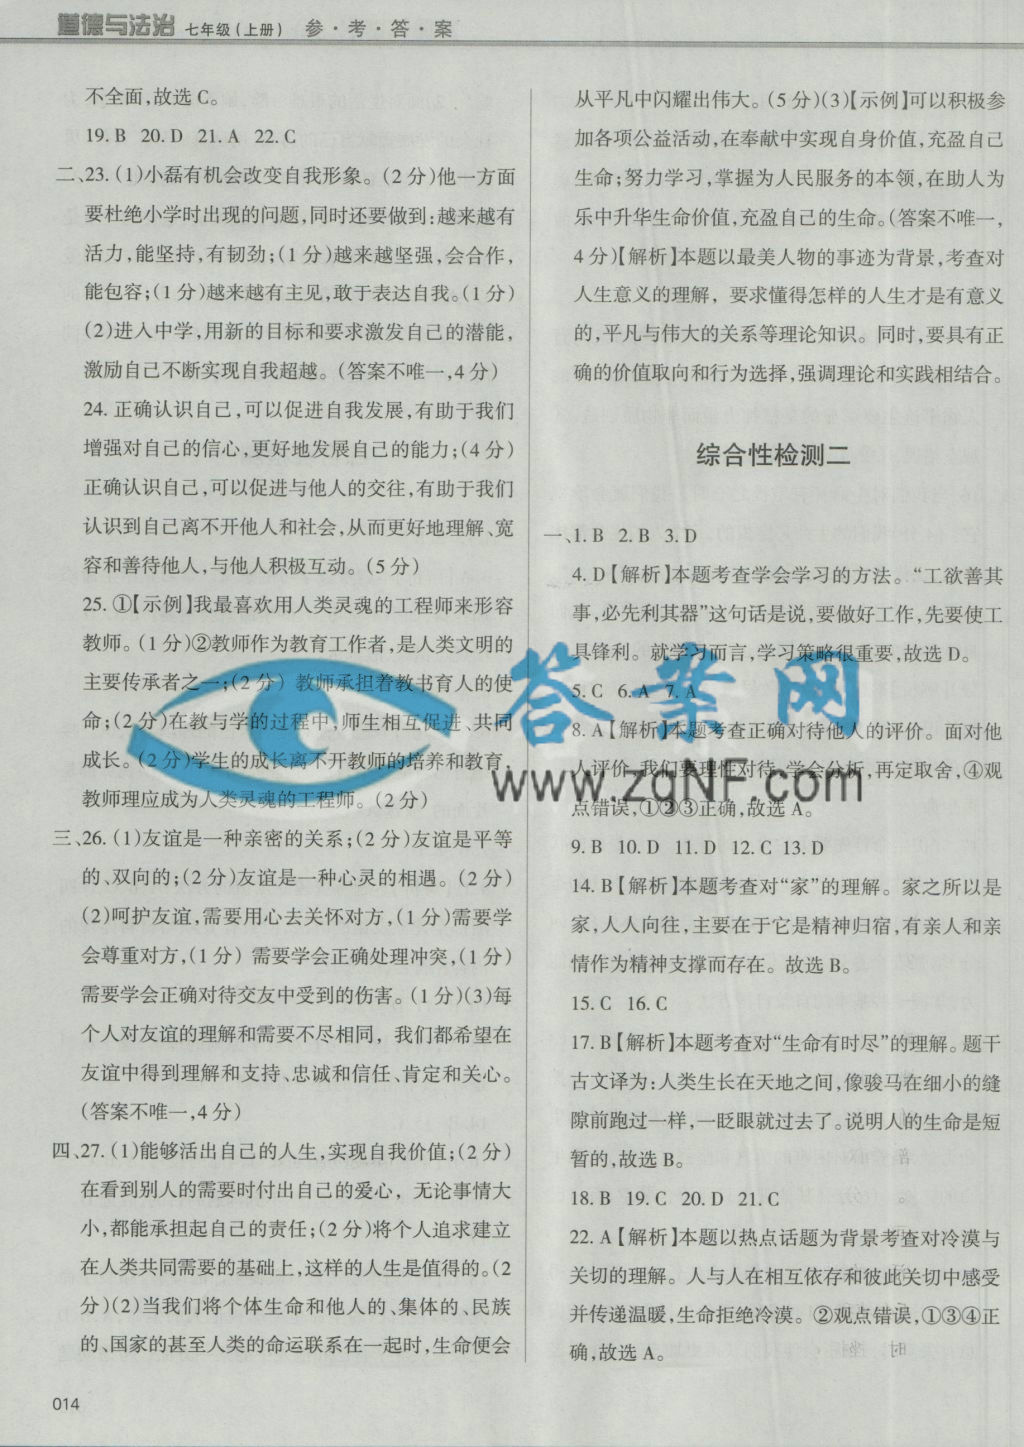 道德与法治 七年级(上册) 参·考·答·案
不全面,故选C。
19. B 20. D 21. A 22. C
二、23. (1)小磊有机会改变自我形象。(2分)他一方面
要杜绝小学时出现的问题,同时还要做到:越来越有
活力,能坚持,有韧劲;(1分)越来越坚强,会合作,
能包容;(1分)越来越有主见,敢于表达自我。(1分)
(2)进入中学,用新的目标和要求激发自己的潜能,
激励自己不断实现自我超越。(答案不唯一,4分)
24. 正确认识自己,可以促进自我发展,有助于我们
增强对自己的信心,更好地发展自己的能力;(4分)
正确认识自己,可以促进与他人的交往,有助于我们
认识到自己离不开他人和社会,从而更好地理解、宽
容和善待他人,与他人积极互动。(5分)
25. ①【示例】我最喜欢用人类灵魂的工程师来形容
教师。(1分)②教师作为教育工作者,是人类文明的
主要传承者之一;(2分)教师承担着教书育人的使
命;(2分)在教与学的过程中,师生相互促进、共同
成长。(2分)学生的成长离不开教师的培养和教育,
教师理应成为人类灵魂的工程师。(2分)
三、26. (1)友谊是一种亲密的关系;(2分)友谊是平等
的、双向的;(2分)友谊是一种心灵的相遇。(2分)
(2)呵护友谊,需要用心去关怀对方,(1分)需要学
会尊重对方,(1分)需要学会正确处理冲突,(1分)
需要学会正确对待交友中受到的伤害。(1分)(3)每
个人对友谊的理解和需要不尽相同,我们都希望在
友谊中得到理解和支持、忠诚和信任、肯定和关心。
(答案不唯一,4分)
四、27. (1)能够活出自己的人生,实现自我价值;(2分)
在看到别人的需要时付出自己的爱心,无论事情大
小,都能承担起自己的责任;(2分)将个人追求建立
在人类共同需要的基础上,这样的人生是值得的。(2
分)(2)当我们将个体生命和他人的、集体的、民族
的、国家的甚至人类的命运联系在一起时,生命便会
014
从平凡中闪耀出伟大。(5分)(3)【示例】可以积极参
加各项公益活动,在奉献中实现自身价值,充盈自己
生命;努力学习,掌握为人民服务的本领,在助人为
乐中升华生命价值,充盈自己的生命。(答案不唯一,
4分)【解析】本题以最美人物的事迹为背景,考查对
人生意义的理解,要求懂得怎样的人生才是有意义
的,平凡与伟大的关系等理论知识。同时,要具有正
确的价值取向和行为选择,强调理论和实践相结合。
综合性检测二
一、1. B 2. B 3. D
4. D【解析】本题考查学会学习的方法。“工欲善其
事,必先利其器”这句话是说,要做好工作,先要使工
具锋利。就学习而言,学习策略很重要,故选D。
5. C 6. A 7. A
8. A【解析】本题考查正确对待他人的评价。面对他
人评价,我们要理性对待,学会分析,再定取舍,④观
点错误,①②③正确,故选A。
9. B 10. D 11. D 12. C 13. D
14. B【解析】本题考查对“家”的理解。家之所以是
家,人人向往,主要在于它是精神归宿,有亲人和亲
情作为精神支撑而存在。故选B。
15. C 16. C
17. B【解析】本题考查对“生命有时尽”的理解。题干
古文译为:人类生长在天地之间,像骏马在细小的缝
隙前跑过一样,一眨眼就过去了。说明人的生命是短
暂的,故选B。
18. B 19. C 20. D 21. C
22. A【解析】本题以热点话题为背景考查对冷漠与
关切的理解。人与人在相互依存和彼此关切中感受
并传递温暖,生命拒绝冷漠。②观点错误,①③④正
确,故选A。
答案网
www.zqNF.com